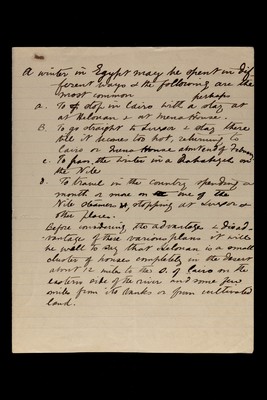 A winter in Egypt may be spent in dif
ferent ways & the following are the
most common perhaps
a. To stop in Cairo with a stay at
at Helouan & at Mena House.
B. To go straight to Luxor & stay there
till it becomes too hot, returning to
Cairo or Mena House at end of
c. To pass the winter in a Dahabeyah on
the Nile
d. To travel in the country spending a
month or more in one of the
Nile steamers, stopping at Luxor &
other places.
Before considering the advantages & disad-
vantages of these various plans it will
be well to say that Helouan is a small
cluster of houses completely in the desert
about 12 miles to the S. of Cairo on the
eastern side of the river and some few
miles from its banks or from cultivated
land.